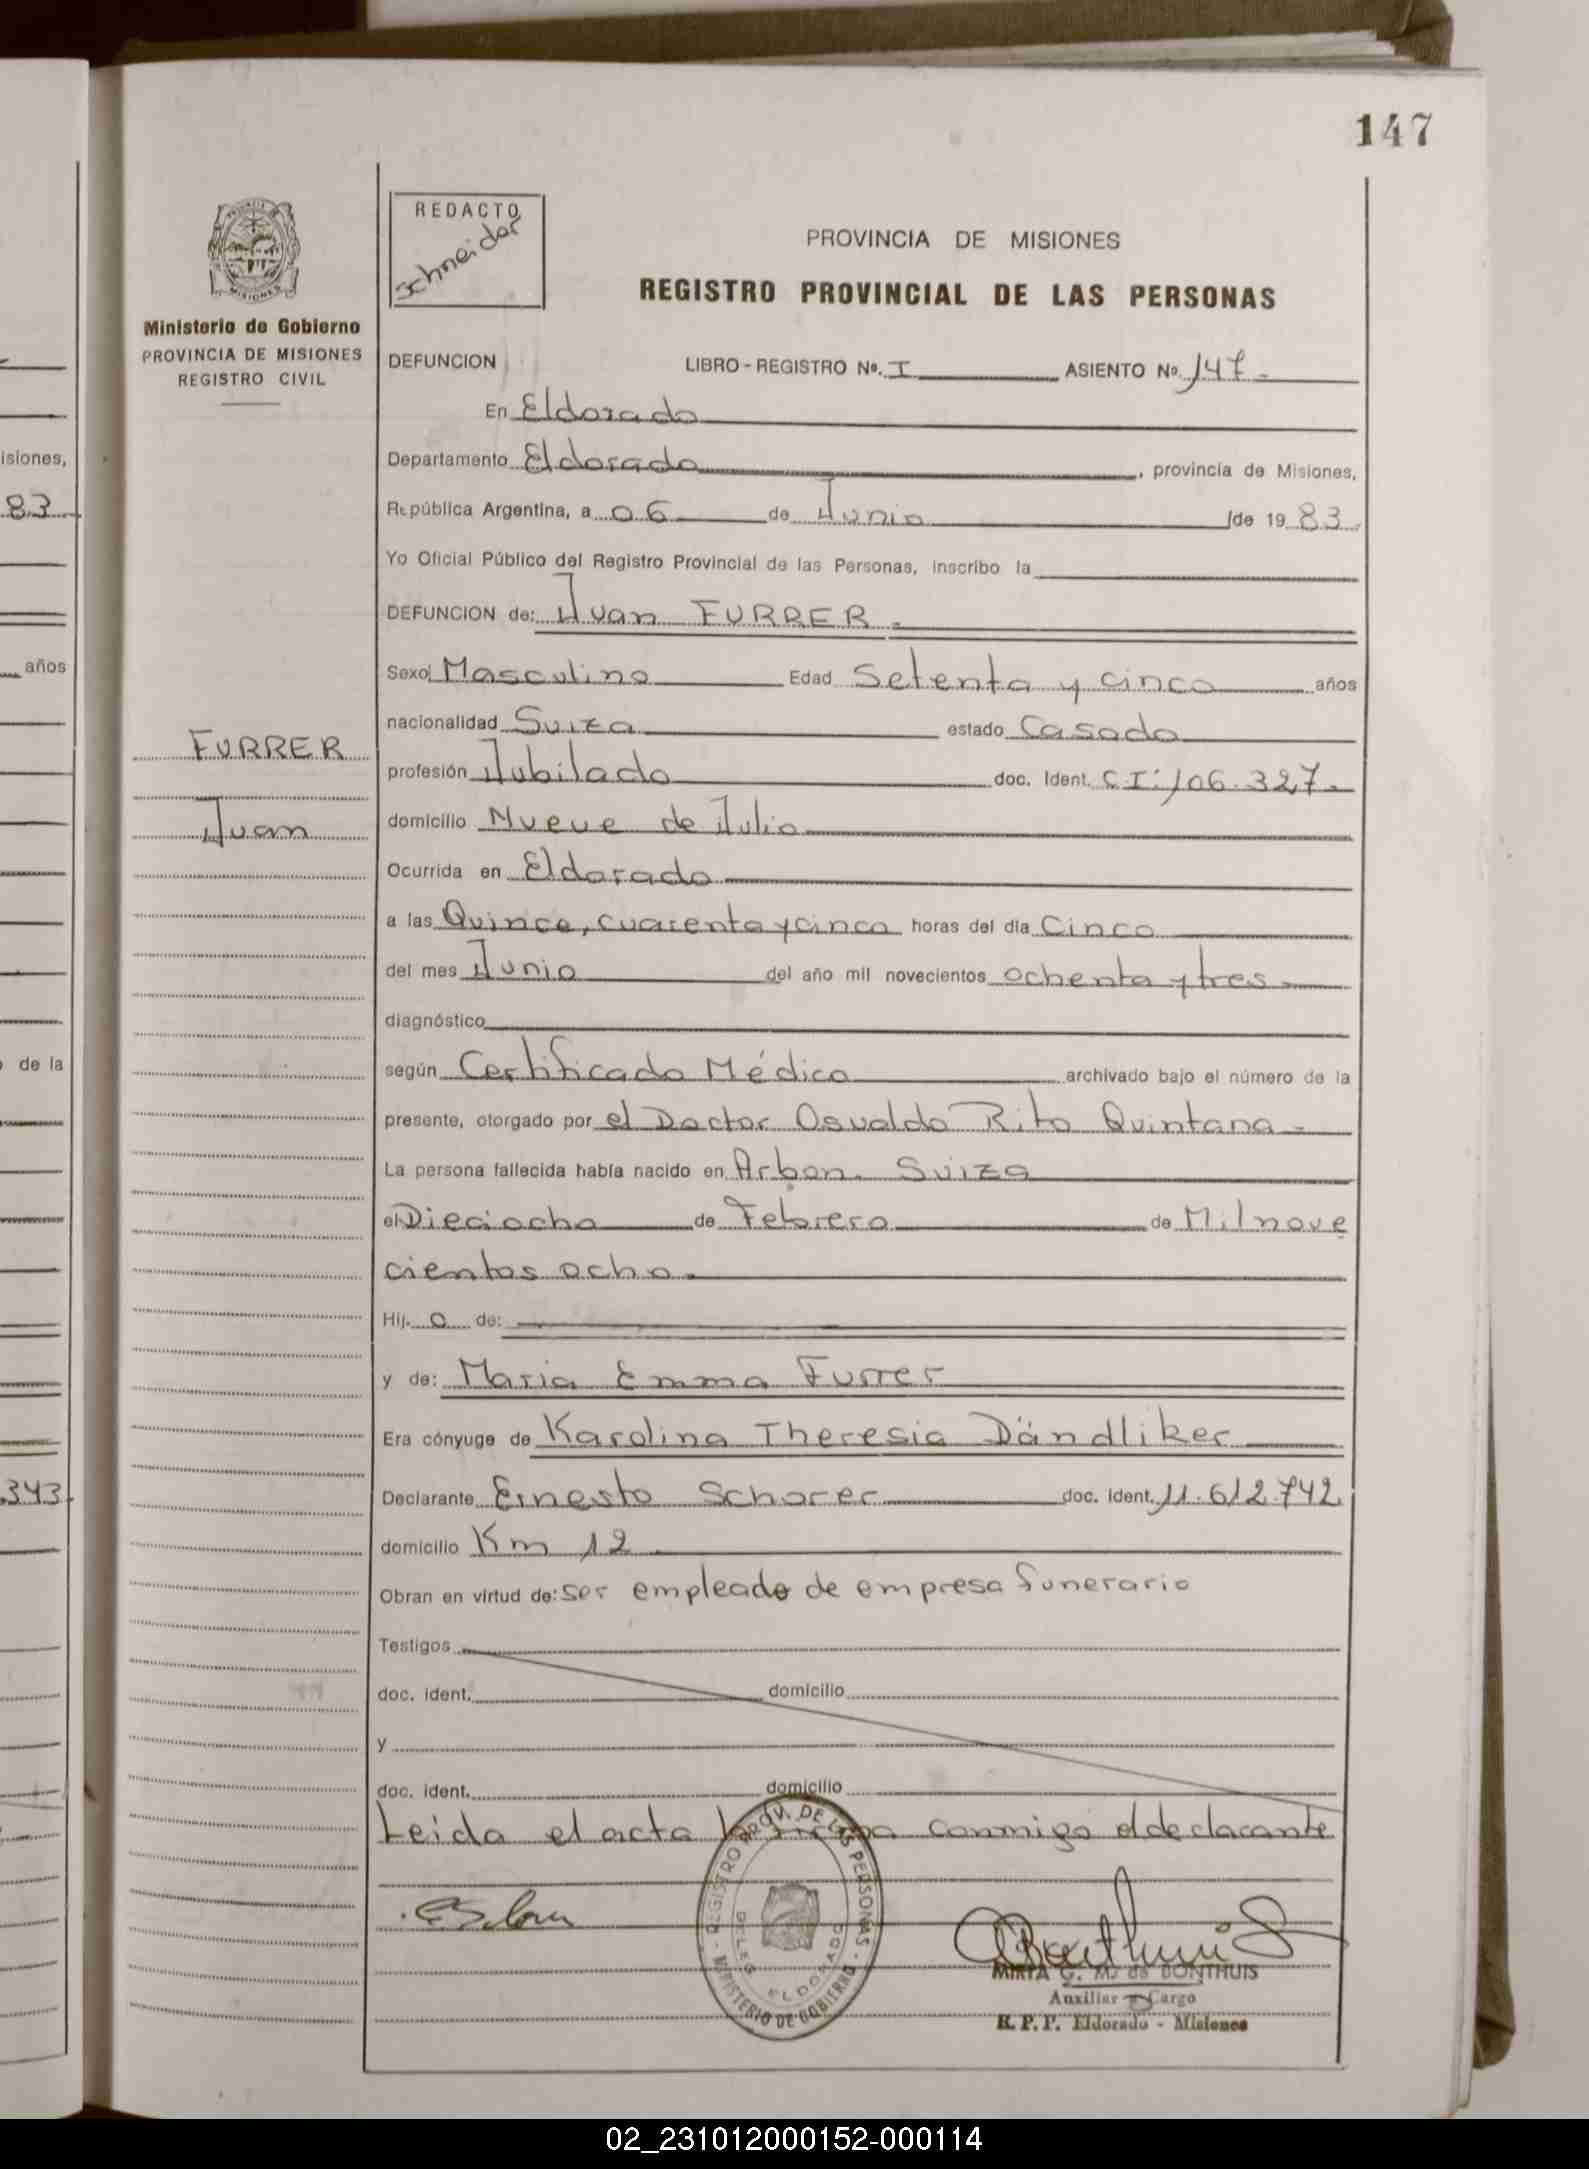 147
REDACTO
Schneider
PROVINCIA DE MISIONES
REGISTRO PROVINCIAL DE LAS PERSONAS
Ministerio de Gobierno
PROVINCIA DE MISIONES
REGISTRO CIVIL
DEFUNCION LIBRO - REGISTRO Nº. I ASIENTO Nº. 147.-
En Eldorado
Departamento Eldorado, provincia de Misiones,
República Argentina, a 06 de Junio de 19 83.
Yo Oficial Público del Registro Provincial de las Personas, inscribo la
DEFUNCION de: Juan FURRER.
Sexo Masculino Edad Setenta y cinco años
nacionalidad Suiza estado Casado
FURRER
profesión Jubilado doc. Ident. C I: 106.327.-
Juan
domicilio Nueve de Julio
Ocurrida en Eldorado
a las Quince, cuarenta y cinco horas del día Cinco
del mes Junio del año mil novecientos ochenta y tres.-
diagnóstico
según Certificado Médico archivado bajo el número de la
presente, otorgado por el Doctor Osvaldo Rito Quintana.-
La persona fallecida había nacido en Arbon. Suiza
el Dieciocho de Febrero de Mil nove
cientos ocho.
Hij. o de:
y de: Maria Emma Furrer
Era cónyuge de Karolina Theresia Dändliker
Declarante Ernesto Schorer doc. ident. 11.612.742
domicilio Km 12.
Obran en virtud de: ser empleado de empresa funerario
Testigos
doc. ident. domicilio
y
doc. ident. domicilio
Leida el acta la firma conmigo el declarante
REGISTRO PROV. DE LAS PERSONAS - MINISTERIO DE GOBIERNO -
DELEG. ELDORADO
MIRTA G. M. de BONTHUIS
Auxiliar a Cargo
R. P. P. Eldorado - Misiones
isiones,
83
años
de la
343
02_231012000152-000114